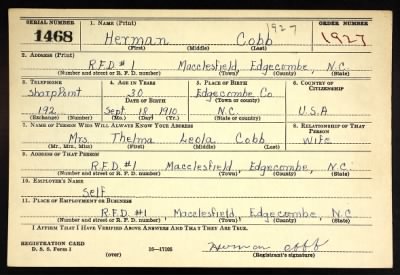 SERIAL NUMBER 1. NAME (Print) 1927 ORDER NUMBER
1468 Herman Cobb 1927
(First) (Middle) (Last)
2. ADDRESS (Print)
R.F.D. #1 Macclesfield, Edgecombe, N.C.
(Number and street or R. F. D. number) (Town) (County) (State)
3. TELEPHONE 4. AGE IN YEARS 5. PLACE OF BIRTH 6. COUNTRY OF CITIZENSHIP
Sharp Point 30 Edgecombe Co.
DATE OF BIRTH (Town or county)
192 Sept 18 1910 N.C. U.S.A
(Exchange) (Number) (Mo.) (Day) (Yr.) (State or country)
7. NAME OF PERSON WHO WILL ALWAYS KNOW YOUR ADDRESS 8. RELATIONSHIP OF THAT PERSON
Mrs. Thelma Leola Cobb Wife
(Mr., Mrs., Miss) (First) (Middle) (Last)
9. ADDRESS OF THAT PERSON
R.F.D. #1 Macclesfield, Edgecombe, N.C.
(Number and street or R. F. D. number) (Town) (County) (State)
10. EMPLOYER'S NAME
Self
11. PLACE OF EMPLOYMENT OR BUSINESS
R.F.D. #1 Macclesfield, Edgecombe, N.C
(Number and street or R. F. D. number) (Town) (County) (State)
I AFFIRM THAT I HAVE VERIFIED ABOVE ANSWERS AND THAT THEY ARE TRUE.
REGISTRATION CARD
D. S. S. Form 1 16—17105 Herman Cobb
(over) (Registrant's signature)